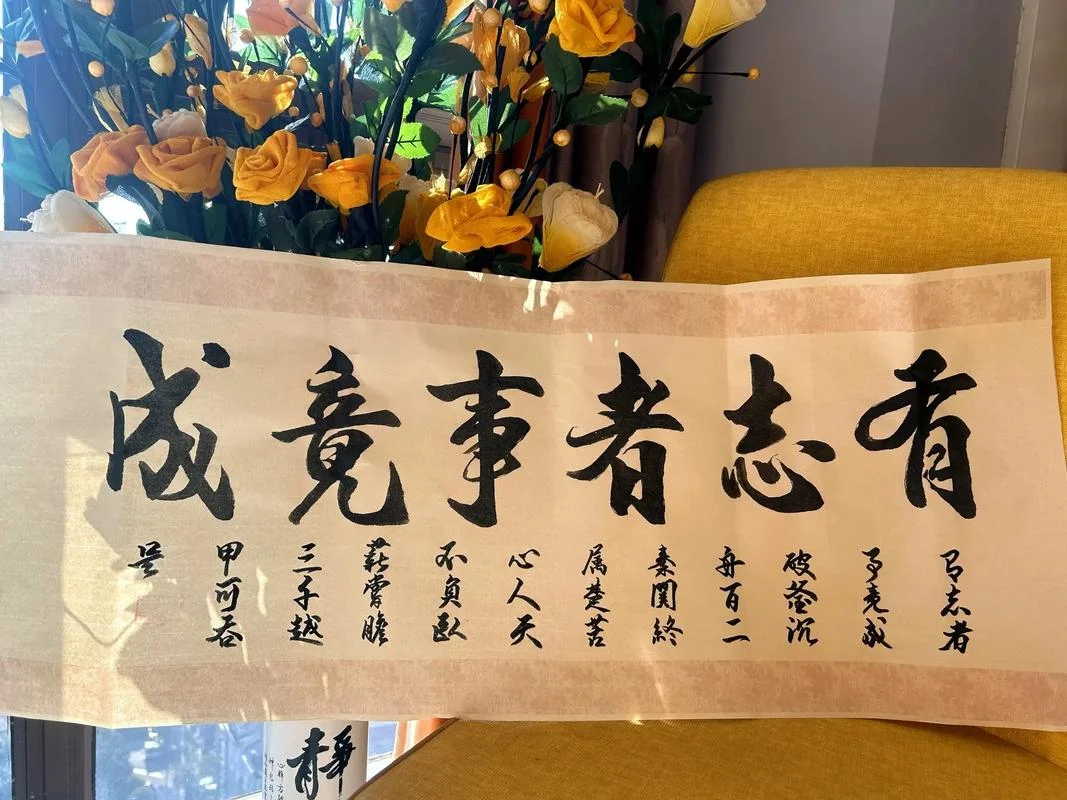 有志者事竟成
有志者
事竟成
破釜沉
舟百二
秦関終
属楚苦
心人天
不負臥
薪嘗膽
三千越
甲可吞
吴
靜